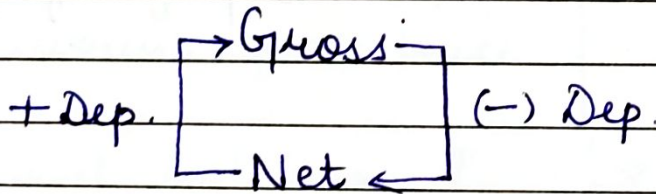 Gross
+ Dep. (-) Dep.
Net